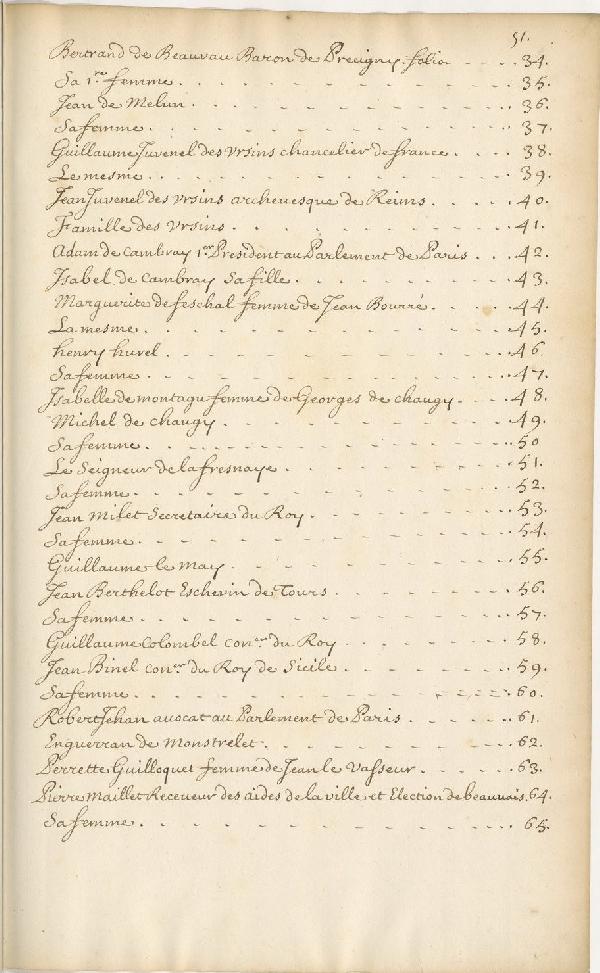 51.
Bertrand de Beauvau Baron de Precigny. folio - - - - 34.
Sa 1re femme. - - - - 35.
Jean de Melun. - - - - 36.
Sa femme. - - - - 37.
Guillaume Juvenel des Ursins chancelier de france. - - - - 38.
Le mesme. - - - - 39.
Jean Juvenel des Ursins archevesque de Reims. - - - - 40.
Famille des Ursins. - - - - 41.
Adam de Cambray 1er President au Parlement de Paris. - - - - 42.
Isabel de Cambray Sa fille. - - - - 43.
Marguerite de feschal femme de Jean Bourré. - - - - 44.
La mesme. - - - - 45.
henry hurel. - - - - 46.
Sa femme. - - - - 47.
Isabelle de montagu femme de Georges de chaugy. - - - - 48.
Michel de chaugy. - - - - 49.
Sa femme. - - - - 50
Le Seigneur de la fresnaye. - - - - 51.
Sa femme. - - - - 52.
Jean milet Secretaire du Roy. - - - - 53.
Sa femme. - - - - 54.
Guillaume le may. - - - - 55.
Jean Berthelot Eschevin de Tours. - - - - 56.
Sa femme. - - - - 57.
Guillaume Colombel coner du Roy. - - - - 58.
Jean Binel coner du Roy de Sicile. - - - - 59.
Sa femme. - - - - 60.
Robert Jehan avocat au Parlement de Paris. - - - - 61.
Enguerran de Monstrelet. - - - - 62.
Perrette Guilloquet femme de Jean le Vasseur. - - - - 63.
Pierre maillet Receveur des aides de la ville et Election de beauvais. 64.
Sa femme. - - - - 65.